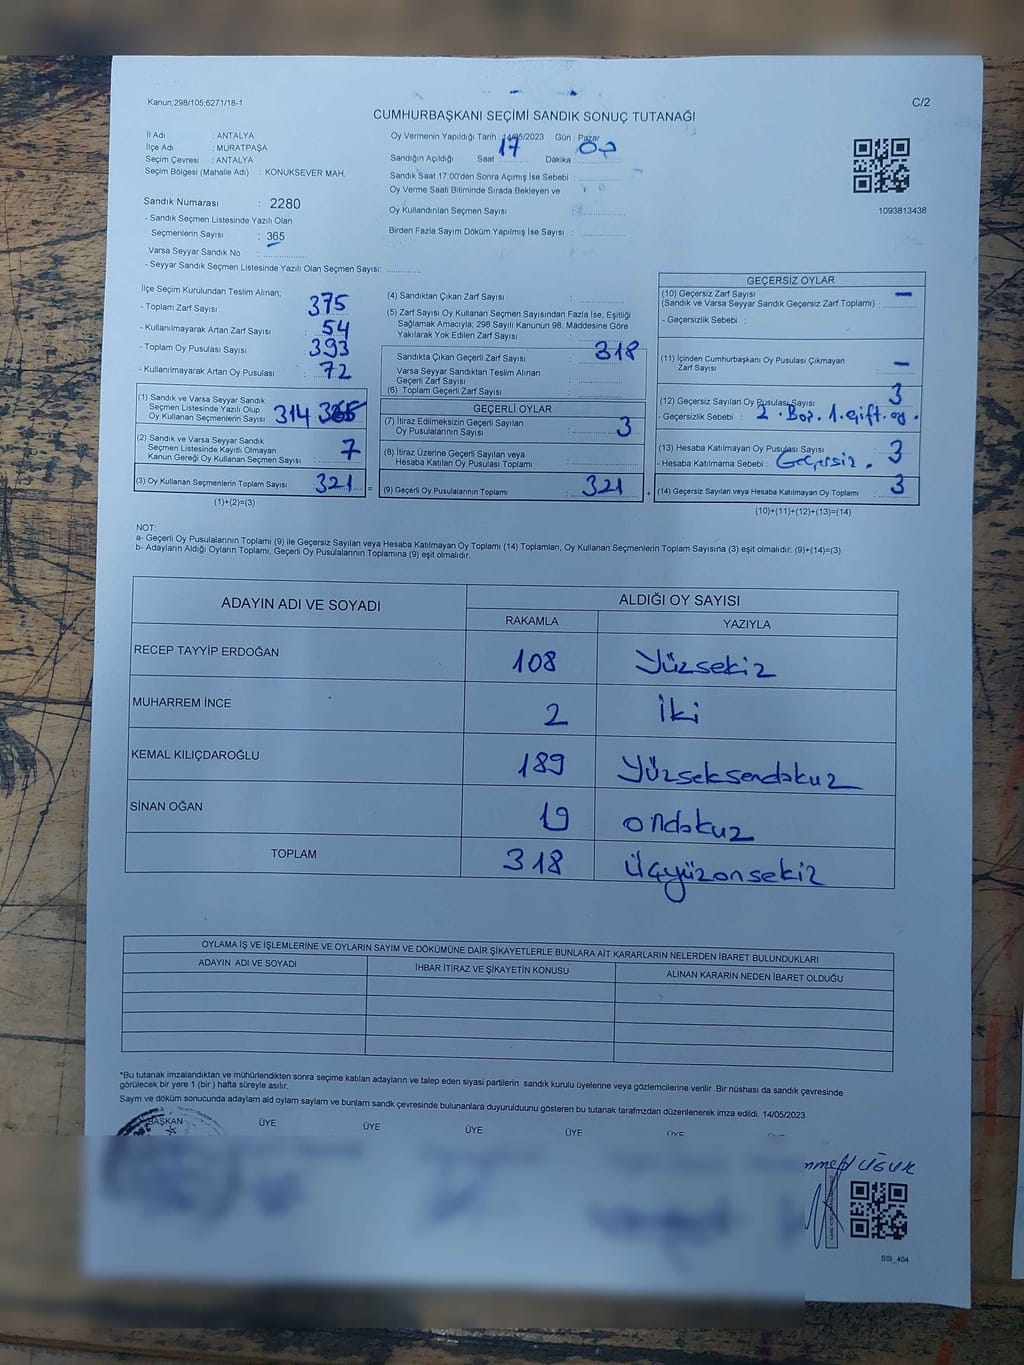 Kanun;298/105;6271/18-1
C/2
CUMHURBAŞKANI SEÇİMİ SANDIK SONUÇ TUTANAĞI
İl Adı : ANTALYA
İlçe Adı : MURATPAŞA
Seçim Çevresi : ANTALYA
Seçim Bölgesi (Mahalle Adı) : KONUKSEVER MAH.
Sandık Numarası : 2280
- Sandık Seçmen Listesinde Yazılı Olan
Seçmenlerin Sayısı : 365
Varsa Seyyar Sandık No :
- Seyyar Sandık Seçmen Listesinde Yazılı Olan Seçmen Sayısı:
Oy Vermenin Yapıldığı Tarih : 14/05/2023 Gün : Pazar
Sandığın Açıldığı Saat 17 Dakika
Sandık Saat 17:00'den Sonra Açımış İse Sebebi :
Oy Verme Saati Bitiminde Sırada Bekleyen ve
Oy Kullandırılan Seçmen Sayısı :
Birden Fazla Sayım Döküm Yapılmış İse Sayısı :
1093813436
İlçe Seçim Kurulundan Teslim Alınan;
- Toplam Zarf Sayısı : 375
- Kullanılmayarak Artan Zarf Sayısı : 54
- Toplam Oy Pusulası Sayısı : 393
- Kullanılmayarak Artan Oy Pusulası : 72
(1) Sandık ve Varsa Seyyar Sandık
Seçmen Listesinde Yazılı Olup
Oy Kullanan Seçmenlerin Sayısı : 314
(2) Sandık ve Varsa Seyyar Sandık
Seçmen Listesinde Kayıtlı Olmayan
Kanun Gereği Oy Kullanan Seçmen Sayısı : 7
(3) Oy Kullanan Seçmenlerin Toplam Sayısı : 321 =
(1)+(2)=(3)
(4) Sandıktan Çıkan Zarf Sayısı :
(5) Zarf Sayısı Oy Kullanan Seçmen Sayısından Fazla İse, Eşitliği
Sağlamak Amacıyla; 298 Sayılı Kanunun 98. Maddesine Göre
Yakılarak Yok Edilen Zarf Sayısı :
Sandıkta Çıkan Geçerli Zarf Sayısı : 318
Varsa Seyyar Sandıktan Teslim Alınan
Geçerli Zarf Sayısı :
(6) Toplam Geçerli Zarf Sayısı :
GEÇERLİ OYLAR
(7) İtiraz Edilmeksizin Geçerli Sayılan
Oy Pusulalarının Sayısı : 3
(8) İtiraz Üzerine Geçerli Sayılan veya
Hesaba Katılan Oy Pusulası Toplamı :
(9) Geçerli Oy Pusulalarının Toplamı : 321 +
GEÇERSİZ OYLAR
(10) Geçersiz Zarf Sayısı —
(Sandık ve Varsa Seyyar Sandık Geçersiz Zarf Toplamı) :
- Geçersizlik Sebebi :
(11) İçinden Cumhurbaşkanı Oy Pusulası Çıkmayan
Zarf Sayısı : —
(12) Geçersiz Sayılan Oy Pusulası Sayısı : 3
- Geçersizlik Sebebi : 2. Boş. 1. çift. oy.
(13) Hesaba Katılmayan Oy Pusulası Sayısı : 3
- Hesaba Katılmama Sebebi : Geçersiz.
(14) Geçersiz Sayılan veya Hesaba Katılmayan Oy Toplamı : 3
(10)+(11)+(12)+(13)=(14)
NOT:
a- Geçerli Oy Pusulalarının Toplamı (9) ile Geçersiz Sayılan veya Hesaba Katılmayan Oy Toplamı (14) Toplamları, Oy Kullanan Seçmenlerin Toplam Sayısına (3) eşit olmalıdır. (9)+(14)=(3)
b- Adayların Aldığı Oyların Toplamı, Geçerli Oy Pusulalarının Toplamına (9) eşit olmalıdır.
ADAYIN ADI VE SOYADI
ALDIĞI OY SAYISI
RAKAMLA YAZIYLA
RECEP TAYYİP ERDOĞAN 108 Yüzsekiz
MUHARREM İNCE 2 İki
KEMAL KILIÇDAROĞLU 189 Yüzseksendokuz
SİNAN OĞAN 19 ondokuz
TOPLAM 318 Üçyüzonsekiz
OYLAMA İŞ VE İŞLEMLERİNE VE OYLARIN SAYIM VE DÖKÜMÜNE DAİR ŞİKAYETLERLE BUNLARA AİT KARARLARIN NELERDEN İBARET BULUNDUKLARI
ADAYIN ADI VE SOYADI İHBAR İTİRAZ VE ŞİKAYETİN KONUSU ALINAN KARARIN NEDEN İBARET OLDUĞU
*Bu tutanak imzalandıktan ve mühürlendikten sonra seçime katılan adayların ve talep eden siyasi partilerin sandık kurulu üyelerine veya gözlemcilerine verilir .Bir nüshası da sandık çevresinde
görülecek bir yere 1 (bir ) hafta süreyle asılır.
Sayım ve döküm sonucunda adayların ald oylam saylam ve bunlam sandk çevresinde bulunanlara duyurulduunu gösteren bu tutanak tarafmzdan düzenlenerek imza edildi. 14/05/2023
BAŞKAN ÜYE ÜYE ÜYE ÜYE ÜYE
UĞUR
SSI_404